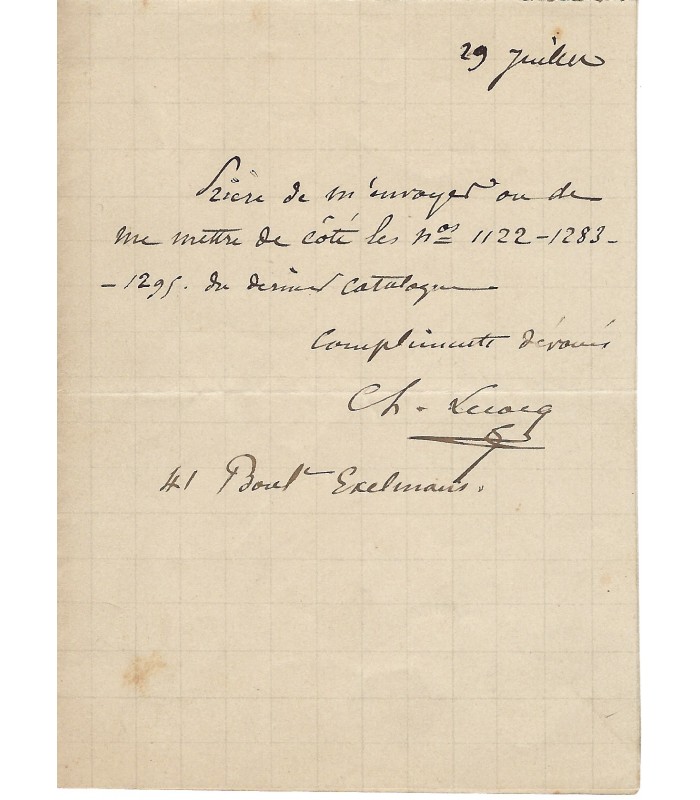 29 Juillet
Prière de m'envoyer ou de
me mettre de côté les nos 1122-1283-
-1295. du dernier catalogue
Compliments dévoués
Ch. Lecocq
41 Boult Exelmans.